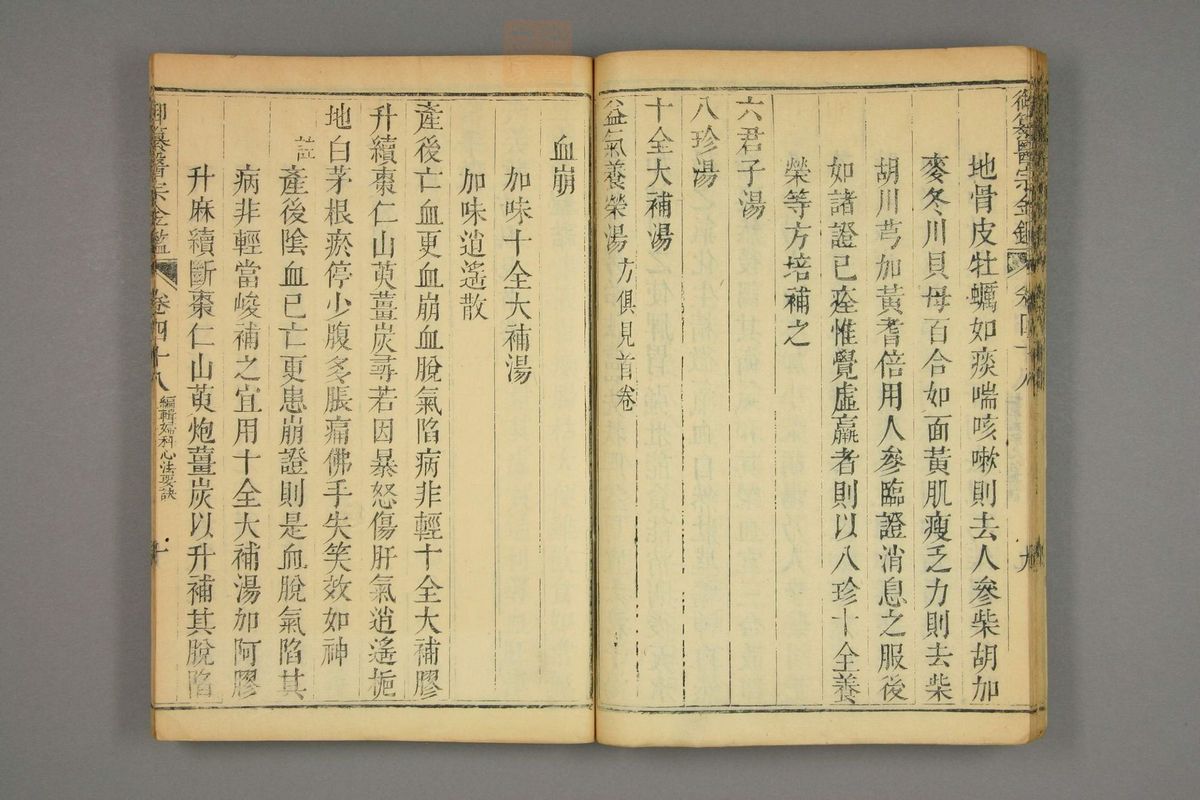 御纂醫宗金鑑
地骨皮牡蠣如痰喘咳嗽則去人參柴胡加
麥冬川貝母百合如面黃肌瘦乏力則去柴
胡川芎加黃耆倍用人參臨證消息之服後
如諸證已痊惟覺虛羸者則以八珍十全養
榮等方培補之
六君子湯
八珍湯
十全大補湯
益氣養榮湯方俱見首卷
血崩
加味十全大補湯
加味逍遙散
產後亡血更血崩血脫氣陷病非輕十全大補膠
升續棗仁山萸薑炭尋若因暴怒傷肝氣逍遙梔
地白茅根瘀停少腹多脹痛佛手失笑效如神
註產後陰血已亡更患崩證則是血脫氣陷其
病非輕當峻補之宜用十全大補湯加阿膠
升麻續斷棗仁山萸炮薑炭以升補其脫陷
御纂醫宗金鑑 卷四十八 編輯婦科心法要訣 十